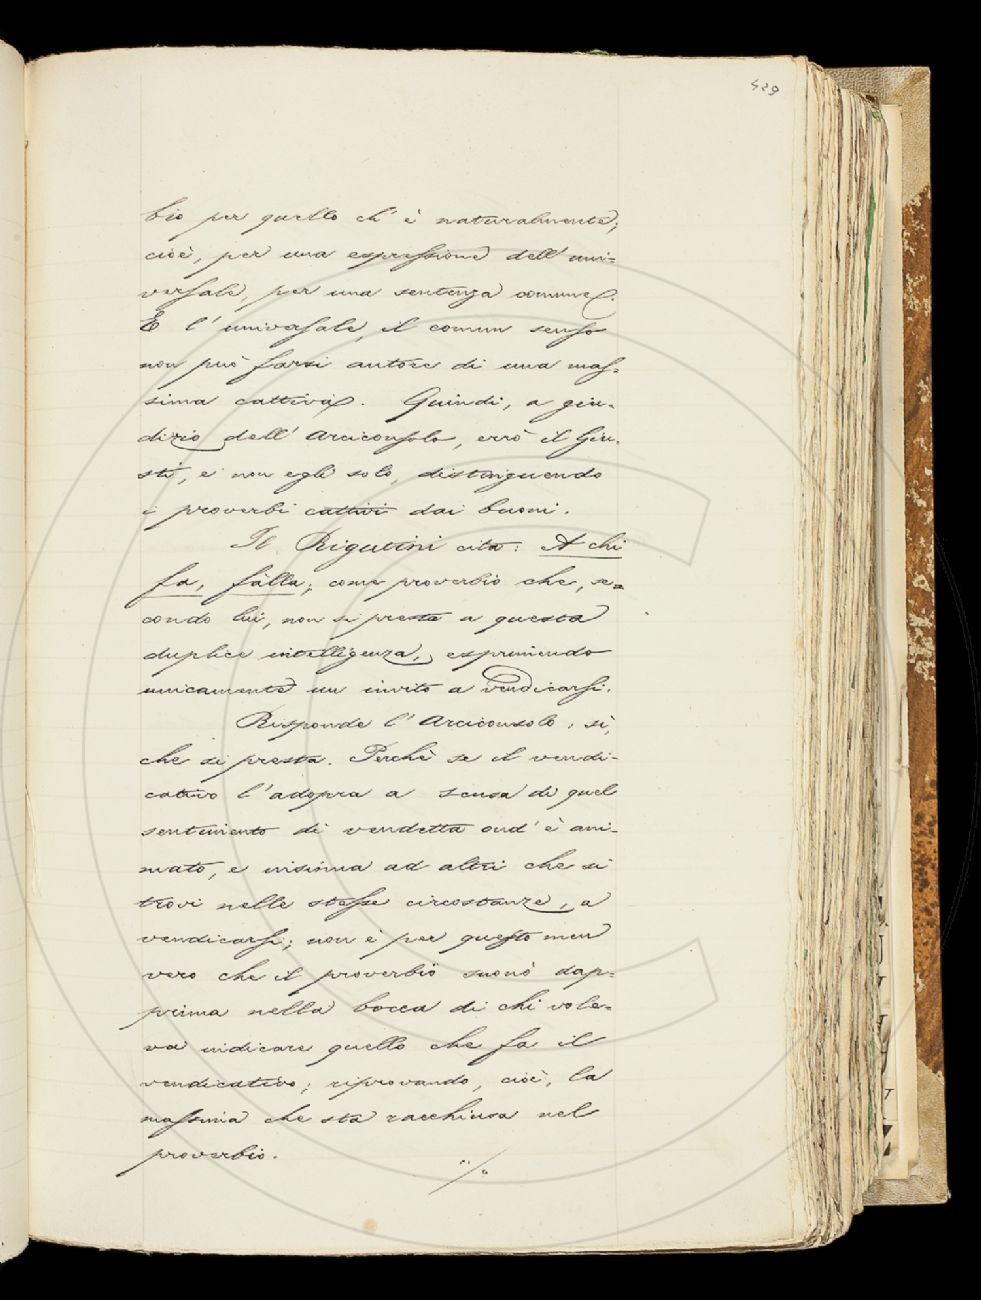 429
bio per quello ch' è naturalmente;
cioè, per una espressione dell' uni=
versale, per una sentenza comune.
E l' universale, il comun senso
non può farsi autore di una mas=
sima cattiva. Quindi, a giu-
dizio dell' Arciconsolo, errò il Giu-
sti, e non egli solo, distinguendo
i proverbi cattivi dai buoni.
Il Rigutini cita: A chi
fa, fàlla; come proverbio che, se=
condo lui, non si presta a questa
duplice intelligenza, esprimendo
unicamente un invito a vendicarsi.
Risponde l' Arciconsolo: sì,
che si presta. Perchè se il vendi-
cativo l' adopra a scusa di quel
sentimento di vendetta ond' è ani-
mato, e insinua ad altri che si
trovi nelle stesse circostanze, a
vendicarsi; non è per questo men
vero che il proverbio suonò dap-
prima nella bocca di chi vole-
va indicare quello che fa il
vendicativo; riprovando, cioè, la
massima che sta racchiusa nel
proverbio.